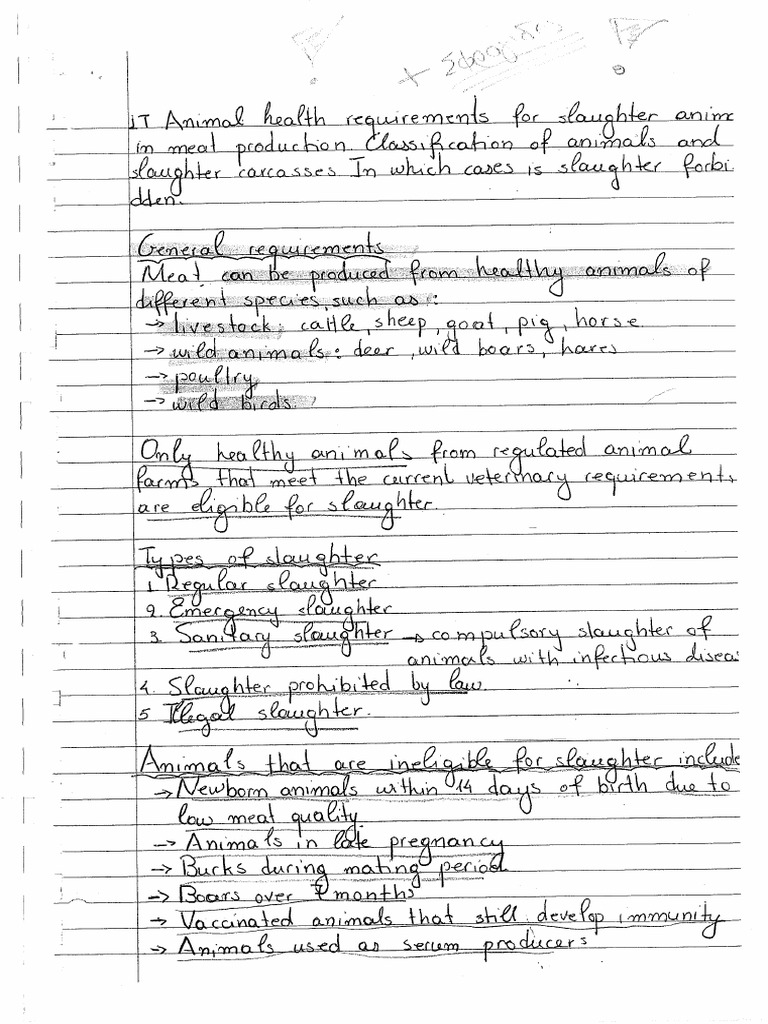 1T Animal health requirements for slaughter anim
in meat production. Classification of animals and
slaughter carcasses In which cases is slaughter forbi
dden.
General requirements
Meat can be produced from healthy animals of
different species, such as:
→ livestock: cattle, sheep, goat, pig, horse
→ wild animals: deer, wild boars, hares
→ poultry
→ wild birds.
Only healthy animals from regulated animal
farms that meet the current veterinary requirements
are eligible for slaughter.
Types of slaughter
1 Regular slaughter
2. Emergency slaughter
3. Sanitary slaughter → compulsory slaughter of
animals with infectious disea
4. Slaughter prohibited by law.
5 Illegal slaughter.
Animals that are ineligible for slaughter include
→ Newborn animals within 14 days of birth due to
low meat quality.
→ Animals in late pregnancy
→ Bucks during mating period
→ Boars over 7 months
→ Vaccinated animals that still develop immunity
→ Animals used as serum producers